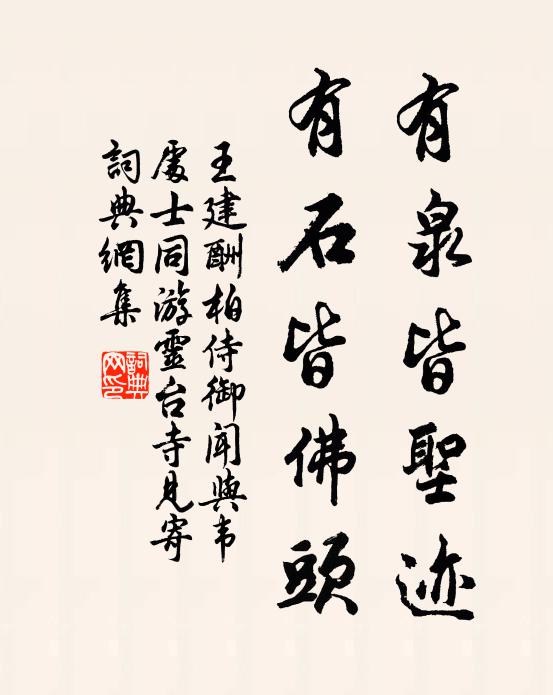 有泉皆聖迹
有石皆佛頭
王建酬柏侍御聞與韦
處士同游靈台寺見寄
詞典網集
詞典
网印